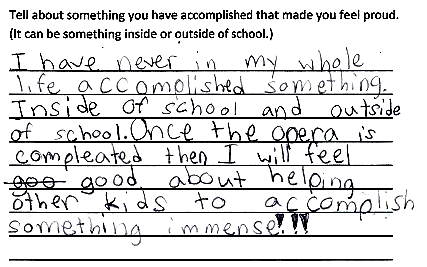 Tell about something you have accomplished that made you feel proud.
(It can be something inside or outside of school.)
I have never in my whole
life accomplished something.
Inside of school and outside
of school. Once the opera is
compleated then I will feel
goo good about helping
other kids to accomplish
something immense!!!